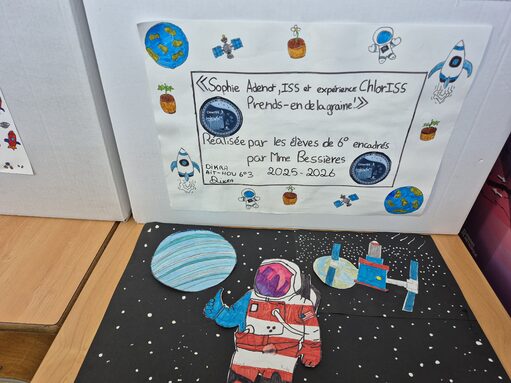 «Sophie Adenot, ISS et expérience ChlorISS
Prends-en de la graine!»
Réalisée par les élèves de 6° encadrés
par Mme Bessières
DIKRA
AIT-HOU 6°3
2025-2026